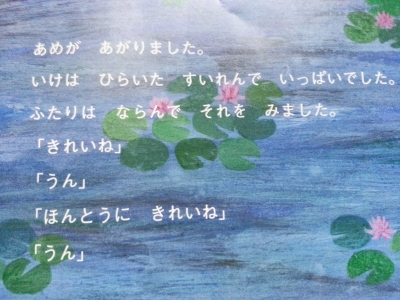 あめが　あがりました。
いけは　ひらいた　すいれんで　いっぱいでした。
ふたりは　ならんで　それを　みました。
「きれいね」
「うん」
「ほんとうに　きれいね」
「うん」